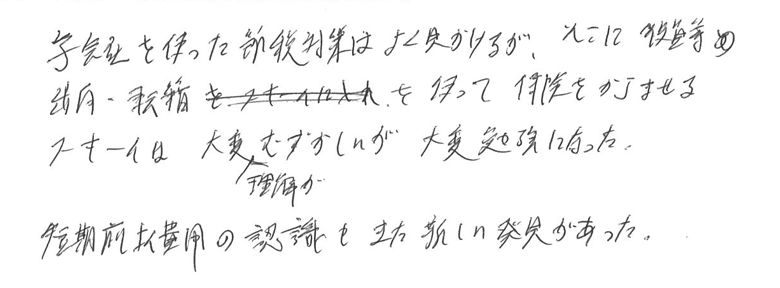 子会社を使った節税対策はよく見かけるが、そこに役員等の
出向・転籍を使って保険をかけさせる
スキームは大変理解がむずかしいが大変勉強になった。
短期前払費用の認識もまた新しい発見があった。